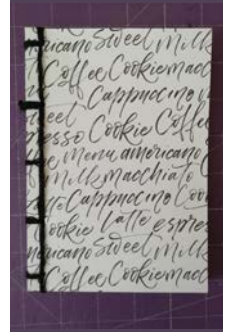 ricano Sweet Milk
Coffee Cookie macc
Cappuccino
eel
esso Cookie Coffe
e menu americano
Milk macchiato
tte Cappuccino Coo
ookie Latte espres
ericano Sweet Milk
Coffee Cookie macc